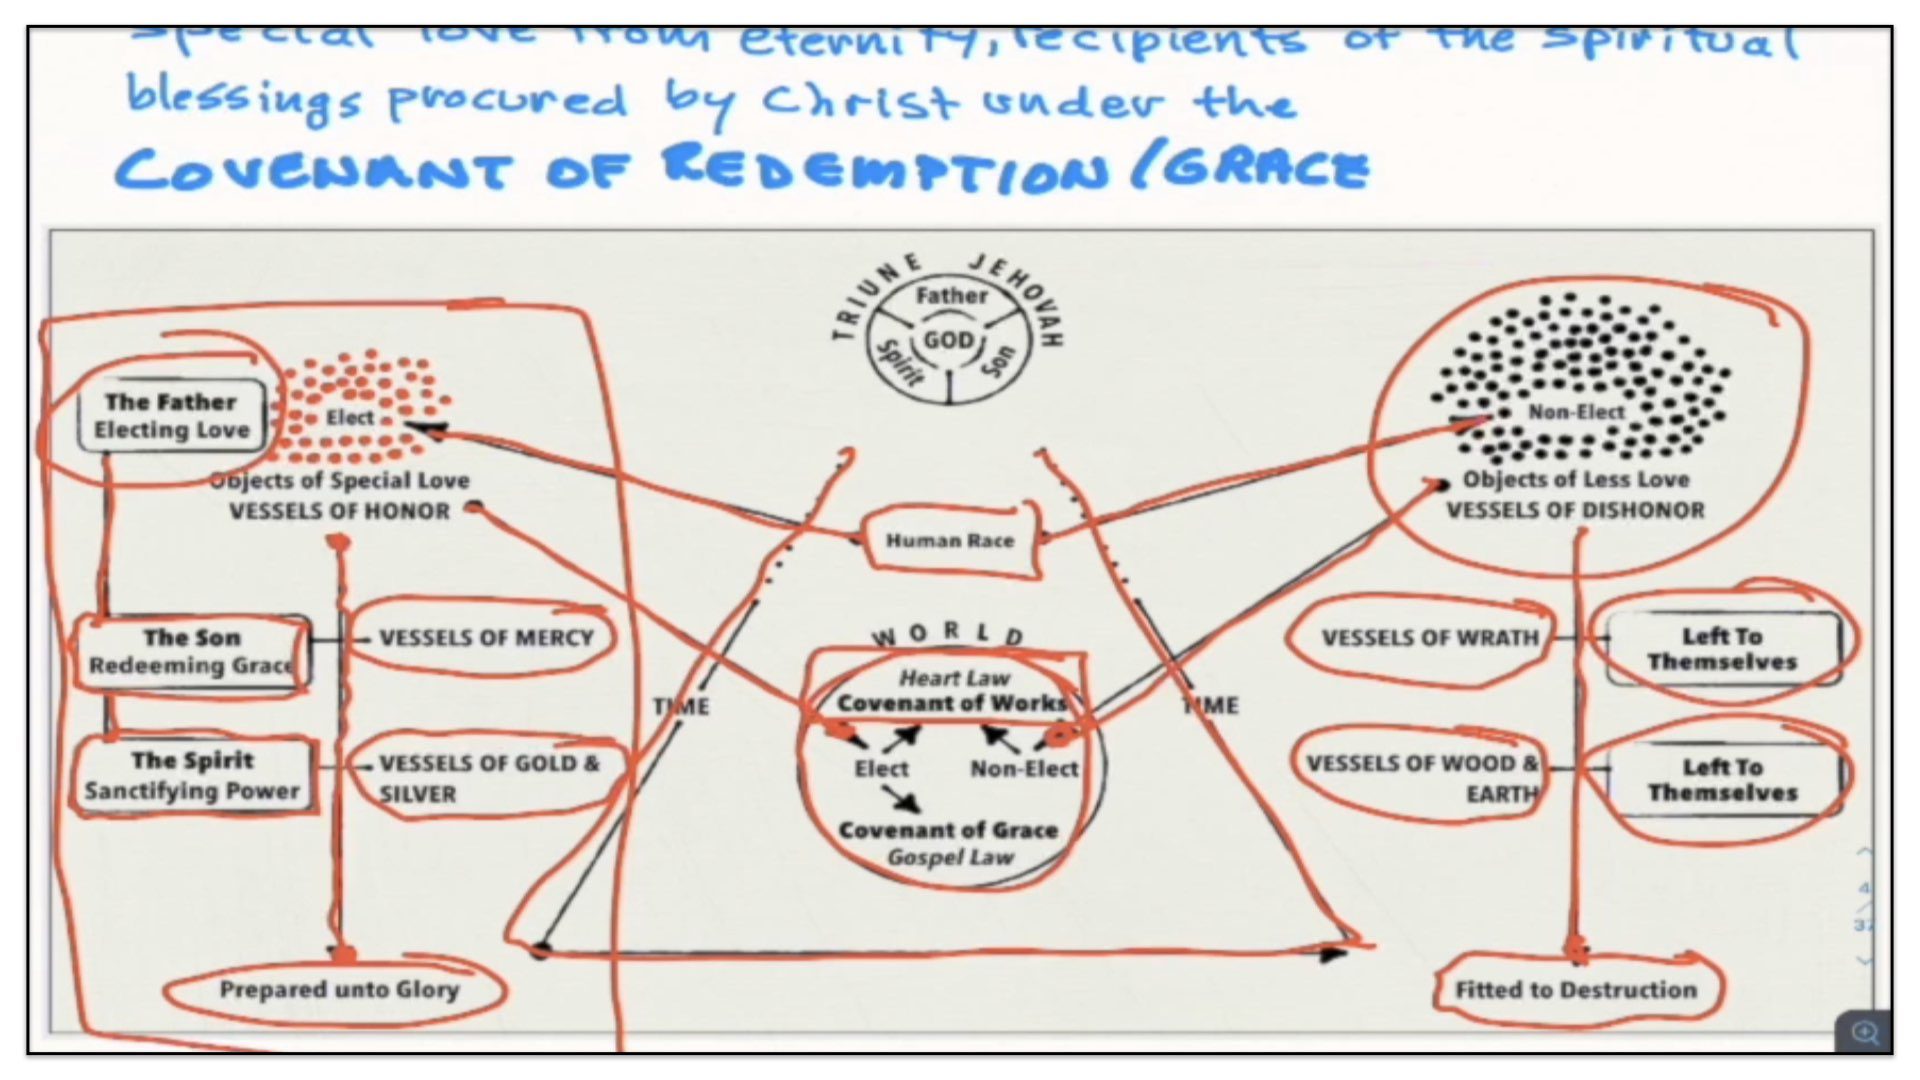 special love from eternity, recipients of the spiritual
blessings procured by Christ under the
COVENANT OF REDEMPTION/GRACE
TRIUNE JEHOVAH
Father
GOD
Spirit
Son
The Father
Electing Love
Elect
Objects of Special Love
VESSELS OF HONOR
Non-Elect
Objects of Less Love
VESSELS OF DISHONOR
Human Race
The Son
Redeeming Grace
VESSELS OF MERCY
WORLD
Heart Law
Covenant of Works
TIME
TIME
Elect
Non-Elect
Covenant of Grace
Gospel Law
VESSELS OF WRATH
Left To
Themselves
The Spirit
Sanctifying Power
VESSELS OF GOLD &
SILVER
VESSELS OF WOOD &
EARTH
Left To
Themselves
Prepared unto Glory
Fitted to Destruction
4
/